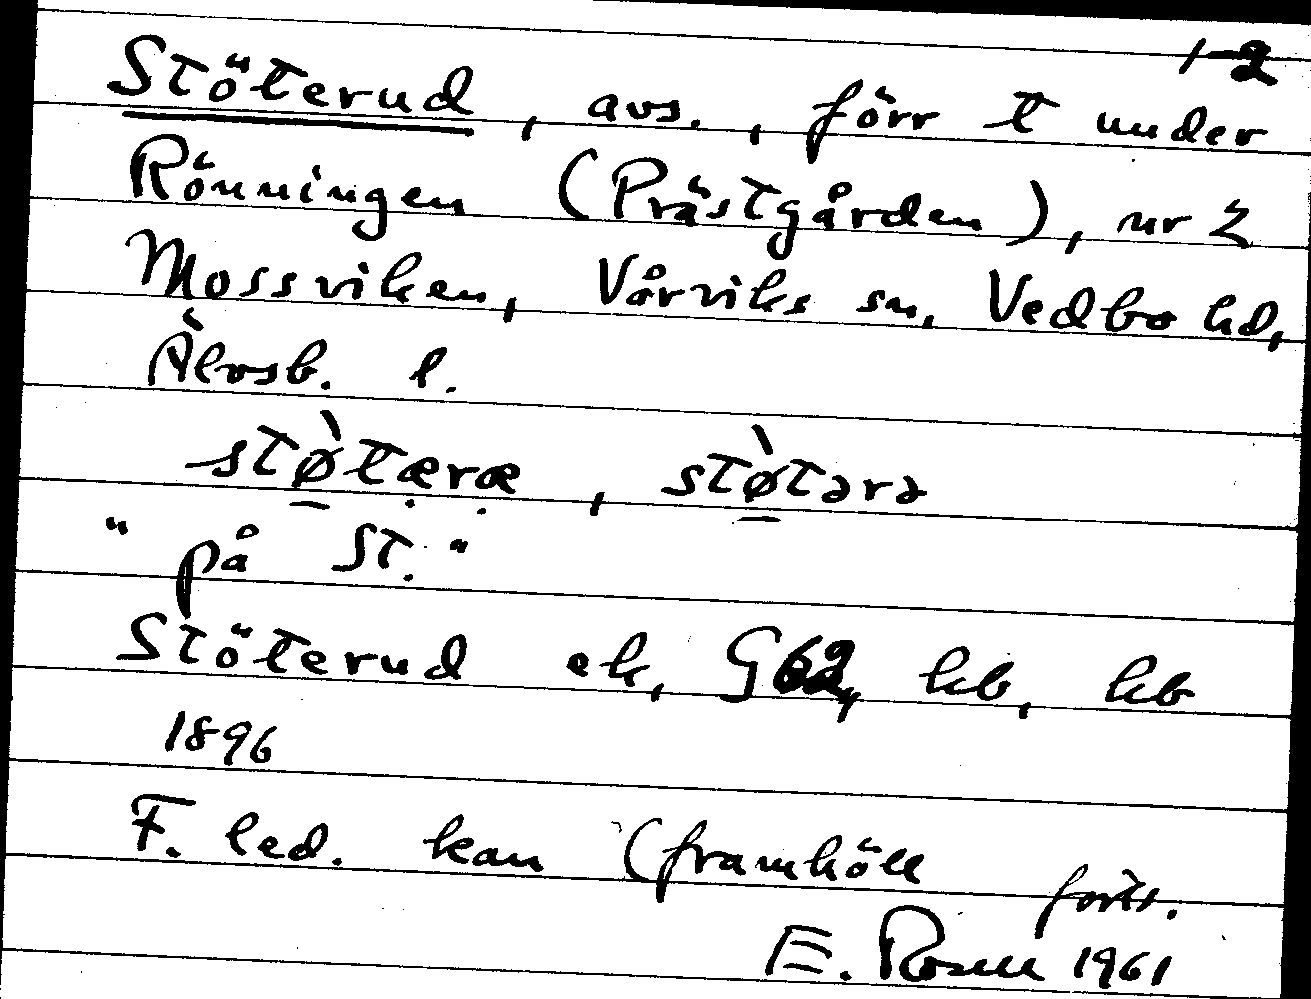 1-2
Stöterud, avs., förr t under
Rönningen (Prästgården), nr 2
Mossviken, Vårviks sn, Vedbo hd,
Älvsb. l.
stø̀tæræ, stø̀tərə
"på St."
Stöterud ek, G62, kb, hb
1896
F. led. kan (framhöll
forts.
E. Rosell 1961